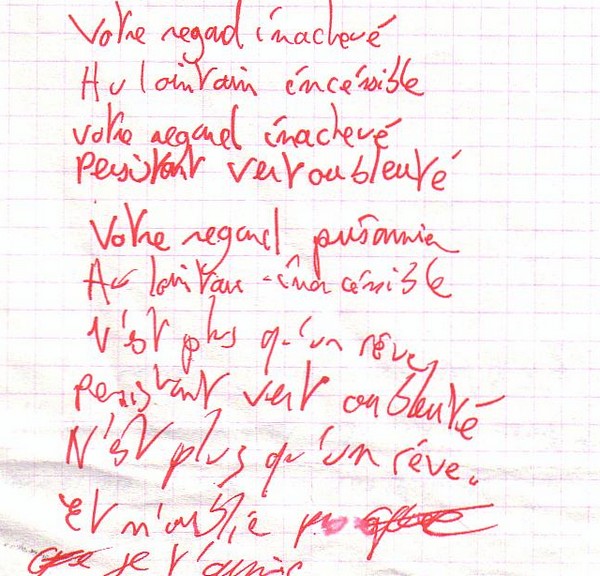 Votre regard inachevé
Au lointain incéssible
Votre regard inachevé
Persistant vert ou bleuté
Votre regard prisonnier
Au lointain inacéssible
N'est plus qu'un rêve,
Persistant vert ou bleuté
N'est plus qu'un rêve.
Et n'oublie
je t'